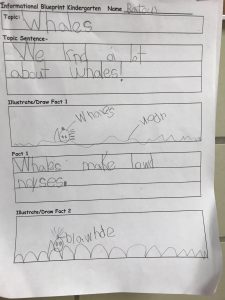 Informational Blueprint Kindergarten Name
Topic:
Whales
Topic Sentence-
We knd a lot
about whales!
Illustrate/Draw Fact 1
Whales
Fact 1
Whales make lowd
noyses.
Illustrate/Draw Fact 2